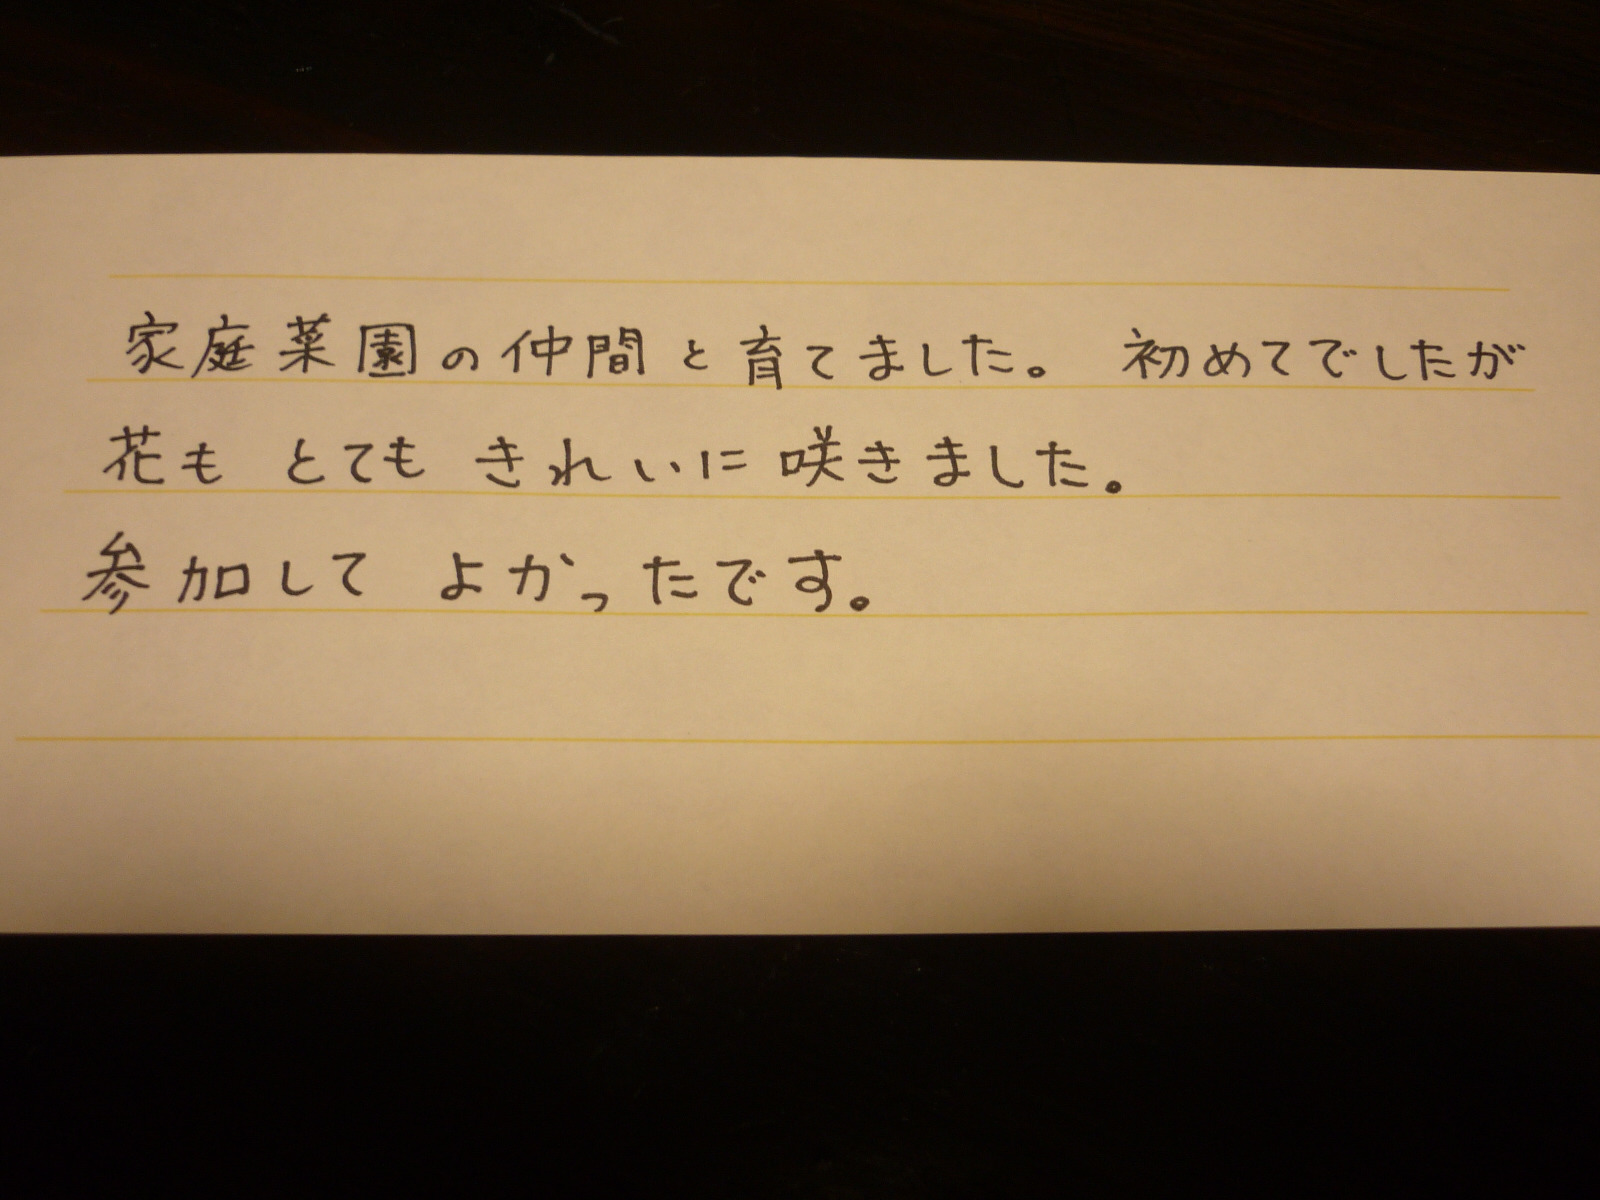 家庭菜園の仲間と育てました。 初めてでしたが
花も とても きれいに咲きました。
参加して よかったです。